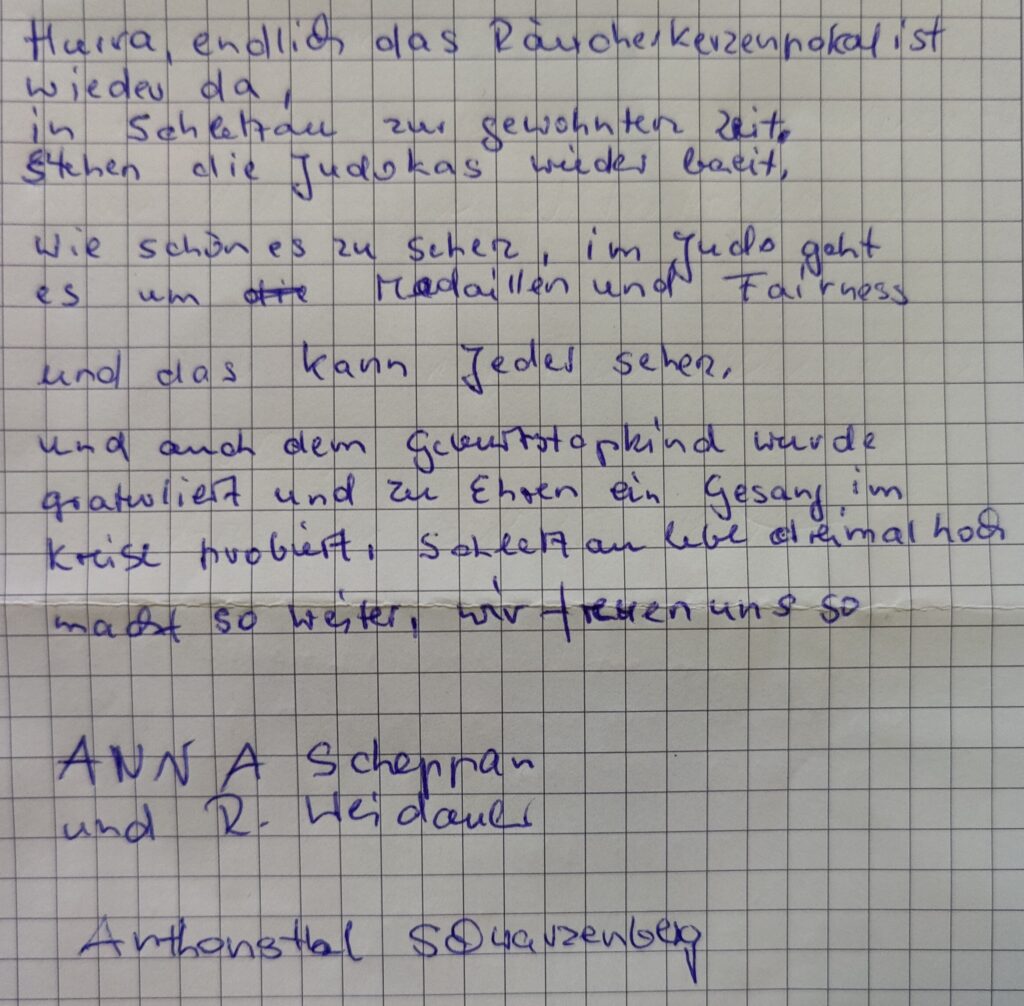 Hurra, endlich das Räucherkerzenpokal ist
wieder da,
in Schlettau zur gewohnten Zeit,
stehen die Judokas wieder bereit,
Wie schön es zu sehen, im Judo geht
es um die Medaillen und Fairness
und das kann Jeder sehen,
und auch dem Geburtstagkind wurde
gratuliert und zu Ehren ein Gesang im
Kreise probiert, Schlettau lebe dreimal hoch
macht so weiter, wir freuen uns so
ANNA Scheppan
und R. Weidauer
Anthonsthal Schwarzenberg